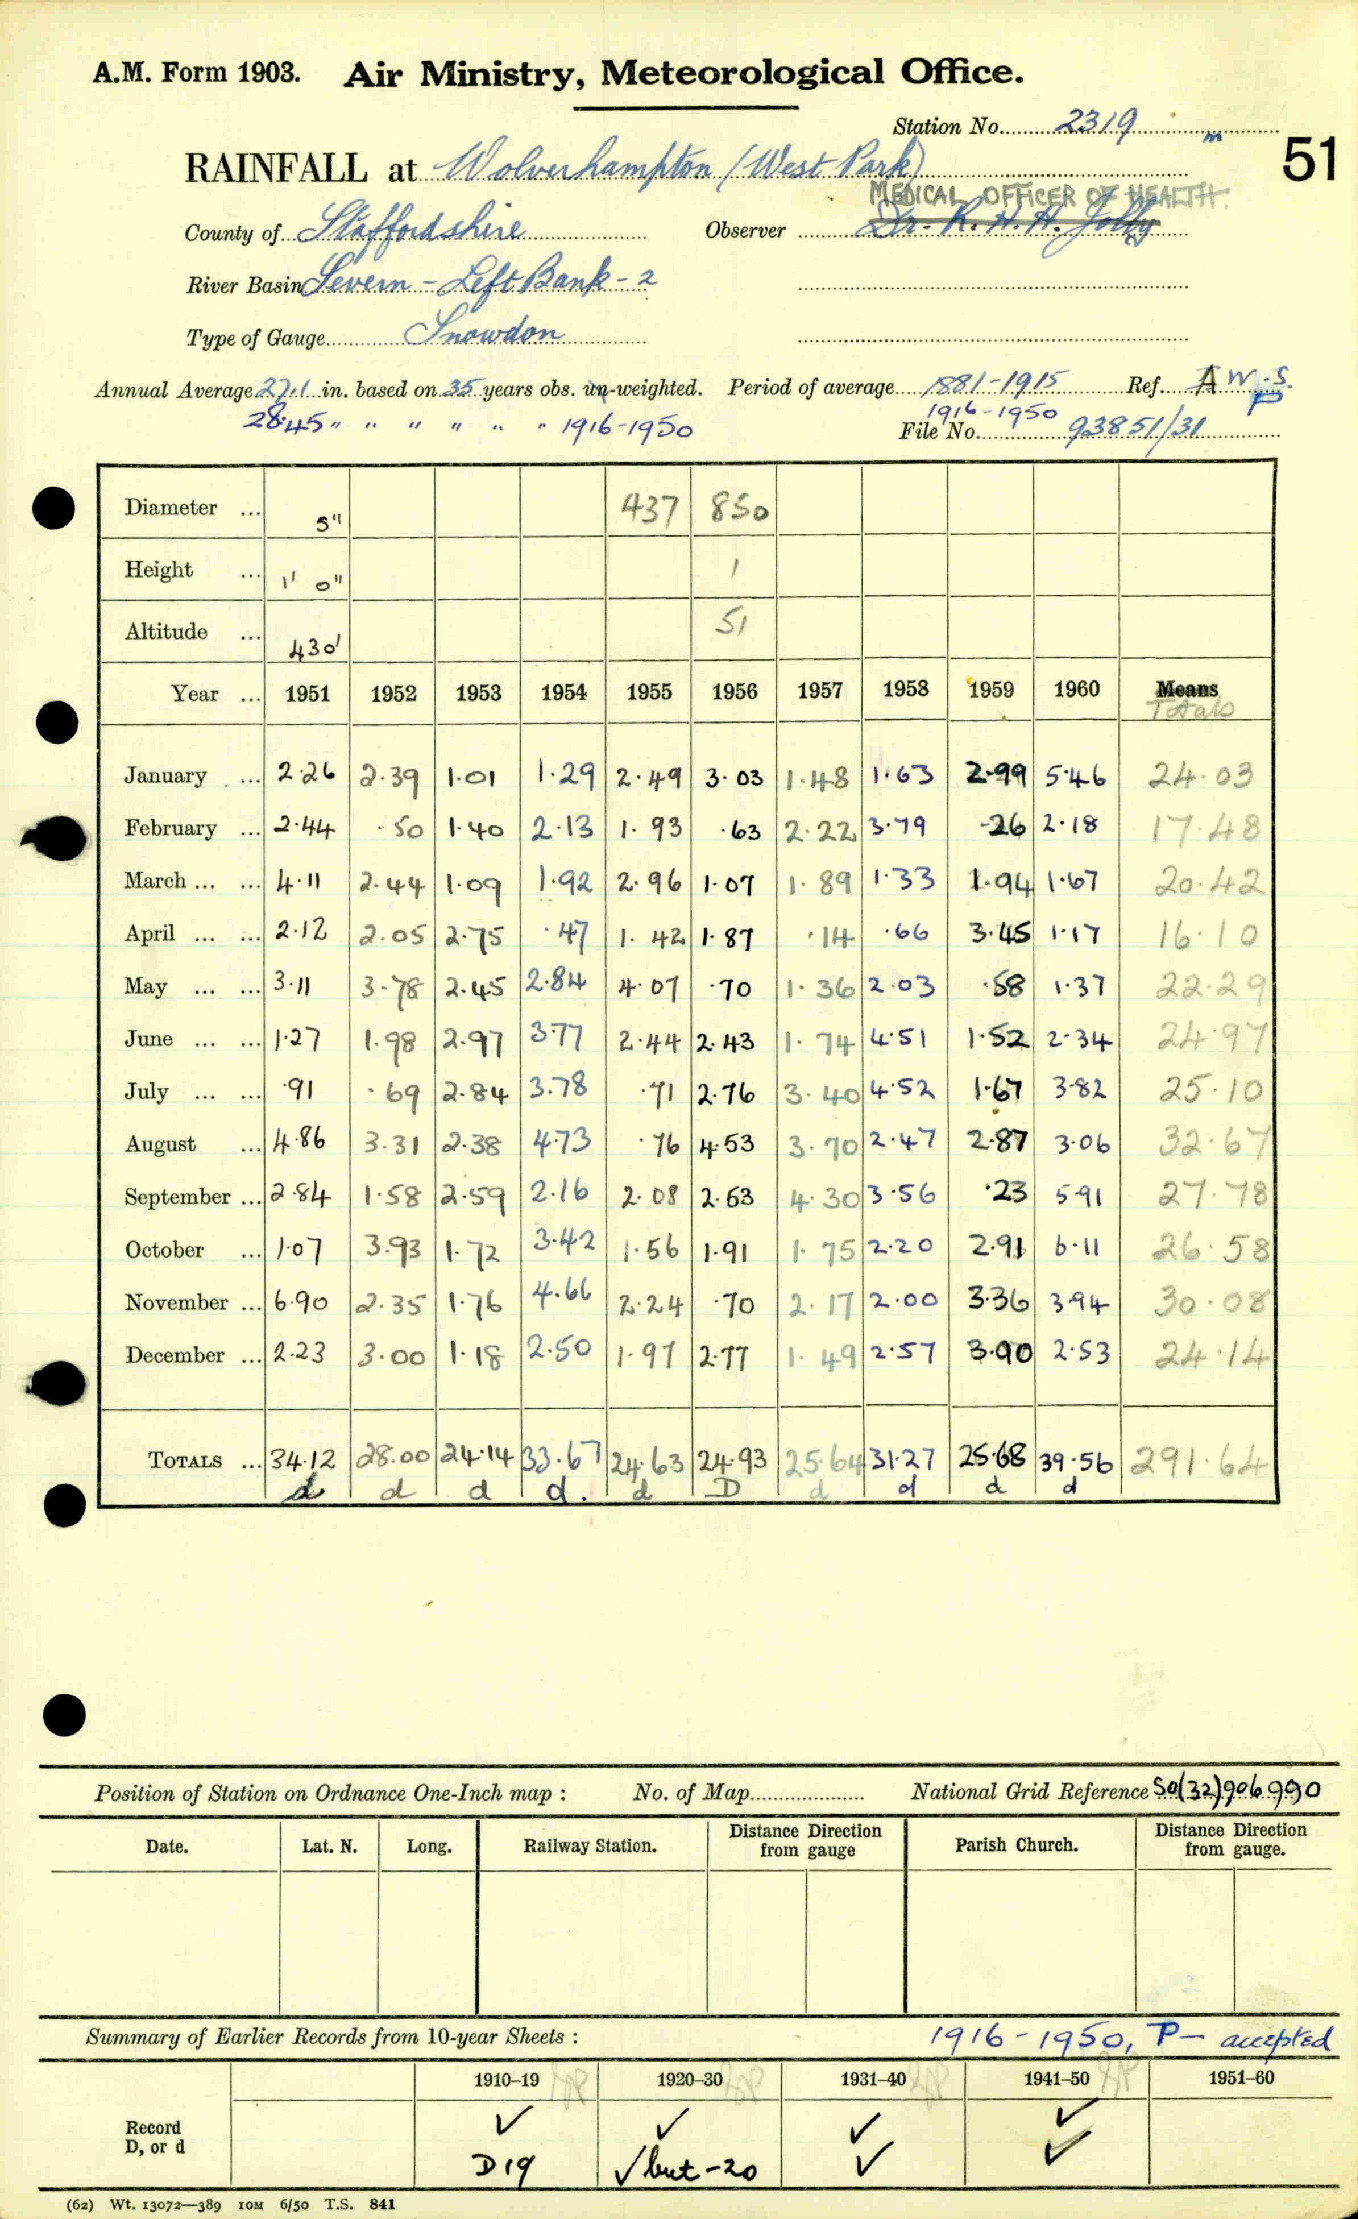 A.M. Form 1903. Air Ministry, Meteorological Office.
Station No. 2319
m
51
RAINFALL at Wolverhampton (West Park)
MEDICAL OFFICER OF HEALTH.
County of Staffordshire Observer Dr. R. H. H. Jolly
River Basin Severn - Left Bank - 2
Type of Gauge Snowdon
Annual Average 27.1 in. based on 35 years obs. un-weighted. Period of average 1881-1915 Ref. A W.S.
P
28.45 " " " " " " 1916-1950 1916-1950
File No. 93851/31
Diameter ... 5" 437 850
Height ... 1' 0" 1
Altitude ... 430' 51
Year ... 1951 1952 1953 1954 1955 1956 1957 1958 1959 1960 Means
Totals
January ... 2.26 2.39 1.01 1.29 2.49 3.03 1.48 1.63 2.99 5.46 24.03
February ... 2.44 .50 1.40 2.13 1.93 .63 2.22 3.79 .26 2.18 17.48
March ... ... 4.11 2.44 1.09 1.92 2.96 1.07 1.89 1.33 1.94 1.67 20.42
April ... ... 2.12 2.05 2.75 .47 1.42 1.87 .14 .66 3.45 1.17 16.10
May ... ... 3.11 3.78 2.45 2.84 4.07 .70 1.36 2.03 .58 1.37 22.29
June ... ... 1.27 1.98 2.97 3.77 2.44 2.43 1.74 4.51 1.52 2.34 24.97
July ... ... .91 .69 2.84 3.78 .71 2.76 3.40 4.52 1.67 3.82 25.10
August ... 4.86 3.31 2.38 4.73 .76 4.53 3.70 2.47 2.87 3.06 32.67
September ... 2.84 1.58 2.59 2.16 2.08 2.53 4.30 3.56 .23 5.91 27.78
October ... 1.07 3.93 1.72 3.42 1.56 1.91 1.75 2.20 2.91 6.11 26.58
November ... 6.90 2.35 1.76 4.66 2.24 .70 2.17 2.00 3.36 3.94 30.08
December ... 2.23 3.00 1.18 2.50 1.97 2.77 1.49 2.57 3.90 2.53 24.14
TOTALS ... 34.12 28.00 24.14 33.67 24.63 24.93 25.64 31.27 25.68 39.56 291.64
d d d d. d D d d d d
Position of Station on Ordnance One-Inch map : No. of Map National Grid Reference SO(32)906990
Date. Lat. N. Long. Railway Station. Distance Direction from gauge Parish Church. Distance Direction from gauge.
Summary of Earlier Records from 10-year Sheets : 1916-1950, P- accepted
1910–19 1920–30 1931–40 1941–50 1951–60
Record ✓ ✓ ✓ ✓
D, or d D19 ✓but-20 ✓ ✓
(62) Wt. 13072—389 10M 6/50 T.S. 841